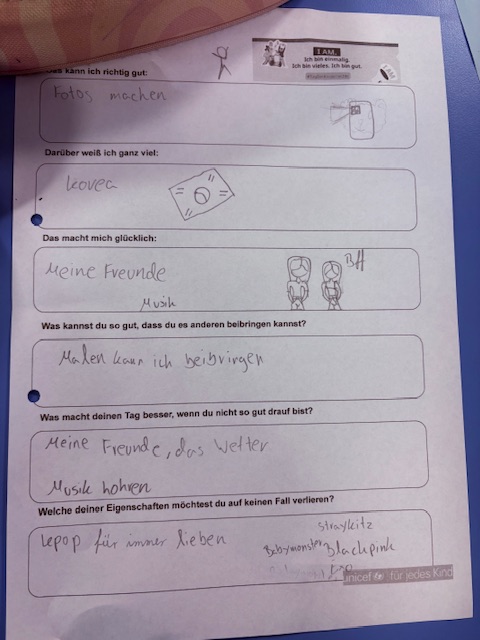 I AM.
Ich bin einmalig.
Ich bin vieles. Ich bin gut.
Das kann ich richtig gut:
Fotos machen
Darüber weiß ich ganz viel:
Korea
Das macht mich glücklich:
Meine Freunde
BFF
Musik
Was kannst du so gut, dass du es anderen beibringen kannst?
Malen kann ich beibringen
Was macht deinen Tag besser, wenn du nicht so gut drauf bist?
Meine Freunde, das Wetter
Musik hohren
Welche deiner Eigenschaften möchtest du auf keinen Fall verlieren?
straykitz
kpop für immer lieben
Babymonster Blackpink
unicef für jedes Kind